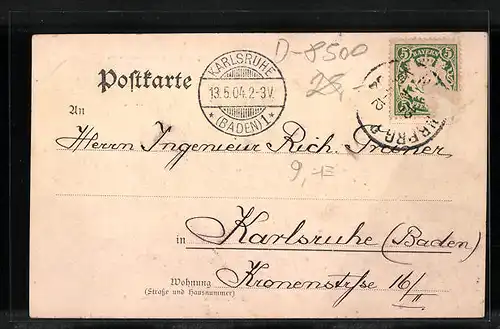 D-8500
28,-
5 BAYERN 5
KARLSRUHE
13.5.04.2-3V.
* (BADEN)1 *
Postkarte
An
Herrn Ingenieur Rich.
9,-E
in Karlsruhe (Baden)
Wohnung
(Straße und Hausnummer)
Kronenstrße 16/II